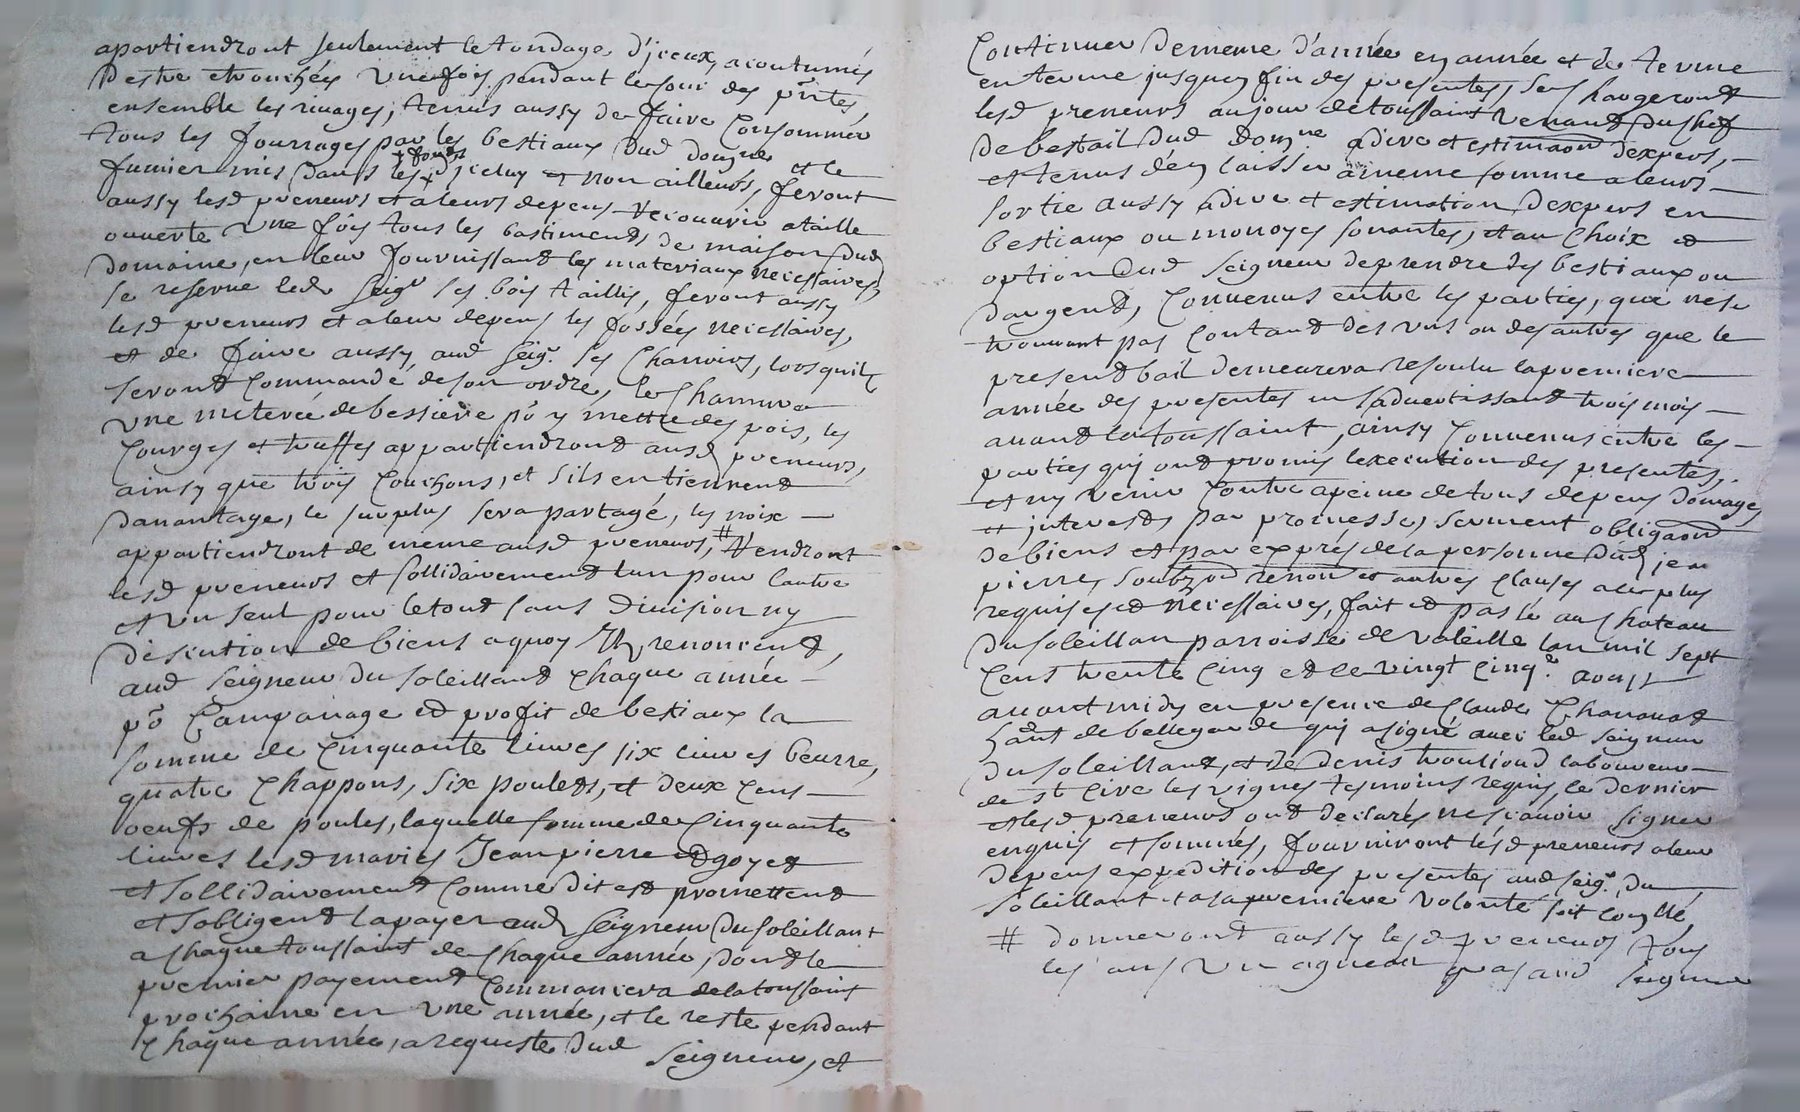 apartiendront seulement le tondage d'jceux, acoutumés
d'estre etronchés une fois pendant le cour des pntes,
ensemble les rivages, tenus aussy de faire Consommer
tous les fourrages par les bestiaux dud domne et le
fumier mis dans les + fonds d'jceluy et non ailleurs, feront
aussy lesd preneurs et a leurs depens recouvrir a taille
ouverte une fois tous les bastiments de maison dud
domaine, en leur fournissant les materiaux necessaires
se reserve led Seigr ses bois taillis, feront aussy
lesd preneurs et a leur depens les fossés necessaires,
et de faire aussy aud Seigr. ses Charrois, lorsquils
seront Commandé de son ordre, le Chanvre
une meterée de bessiere po y mettre des pois, les
Courges et truffes appartiendront ausd preneurs,
ainsy que trois Couchons, et s'ils en tiennent
davantage, le surplus sera partagé, les noix
appartiendront de meme ausd preneurs, # Vendront
lesd preneurs et sollidairement lun pour lautre
et un seul pour le tout sans division ny
discution de biens a quoy Ils renoncent,
aud Seigneur du soleillant chaque année
po Campanage et profit de bestiaux la
somme de Cinquante livres six livres beurre,
quatre Chappons, six poulets, et deux Cens
oeufs de poules, laquelle somme de Cinquante
livres lesd mariés Jean pierre et goyet
et sollidairement Comme dit est promettent
et sobligent la payer aud Seigneur du soleillant
a chaque toussaint de chaque année, dont le
premier payement Commancera de la toussaint
prochaine en une année, et le reste pendant
Chaque année, a requeste dud Seigneur, et
Continuer de meme d'année en année et de terme
en terme jusques fin des presentes, se Chargeront
lesd preneurs au jour de toussaint venant du chef
de bestail dud domne a dire et estimaon dexpers,
et tenus d'en laisser a meme somme a leurs
sortie aussy a dire et estimation dexpers en
bestiaux ou monoyes sonantes, et au Choix et
option dud Seigneur de prendre des bestiaux ou
dargent, Convenus entre les parties, que ne se
trouvant pas Contant des uns ou des autres que le
present bail demeurera resoulu la premiere
année des presentes en sadvertissant trois mois
avant la toussaint, ainsy Convenus entre les
parties qui ont promis lexecution des presentes,
et ny venir Contre a peine de tous depens domages
et jnterests par promesses, serment obligaon
de biens et par exprés de la personne dud jean
pierre, soubz on renon et autres Clauses a ce plus
requises et necessaires, fait et passé au Chateau
du soleillan parroisse de valeille lan mil sept
Cens trente Cinq et le vingt Cinqe. aoust
avant midy en presence de Claude Chanavat
hant de bellegarde qui a signé avec led Seigneur
du soleillant, et de denis troulioud laboureur
de st Cire les vignes tesmoins requis, le dernier
et lesd preneurs ont declarés ne sçavoir signer
enquis et sommés, fourniront lesd preneurs a leur
depens expedition des presentes aud Seigr. du
soleillant et a sa premiere volonté soit Conllé
# donneront aussy lesd preneurs tous
les ans un agneau gras aud Seigneur